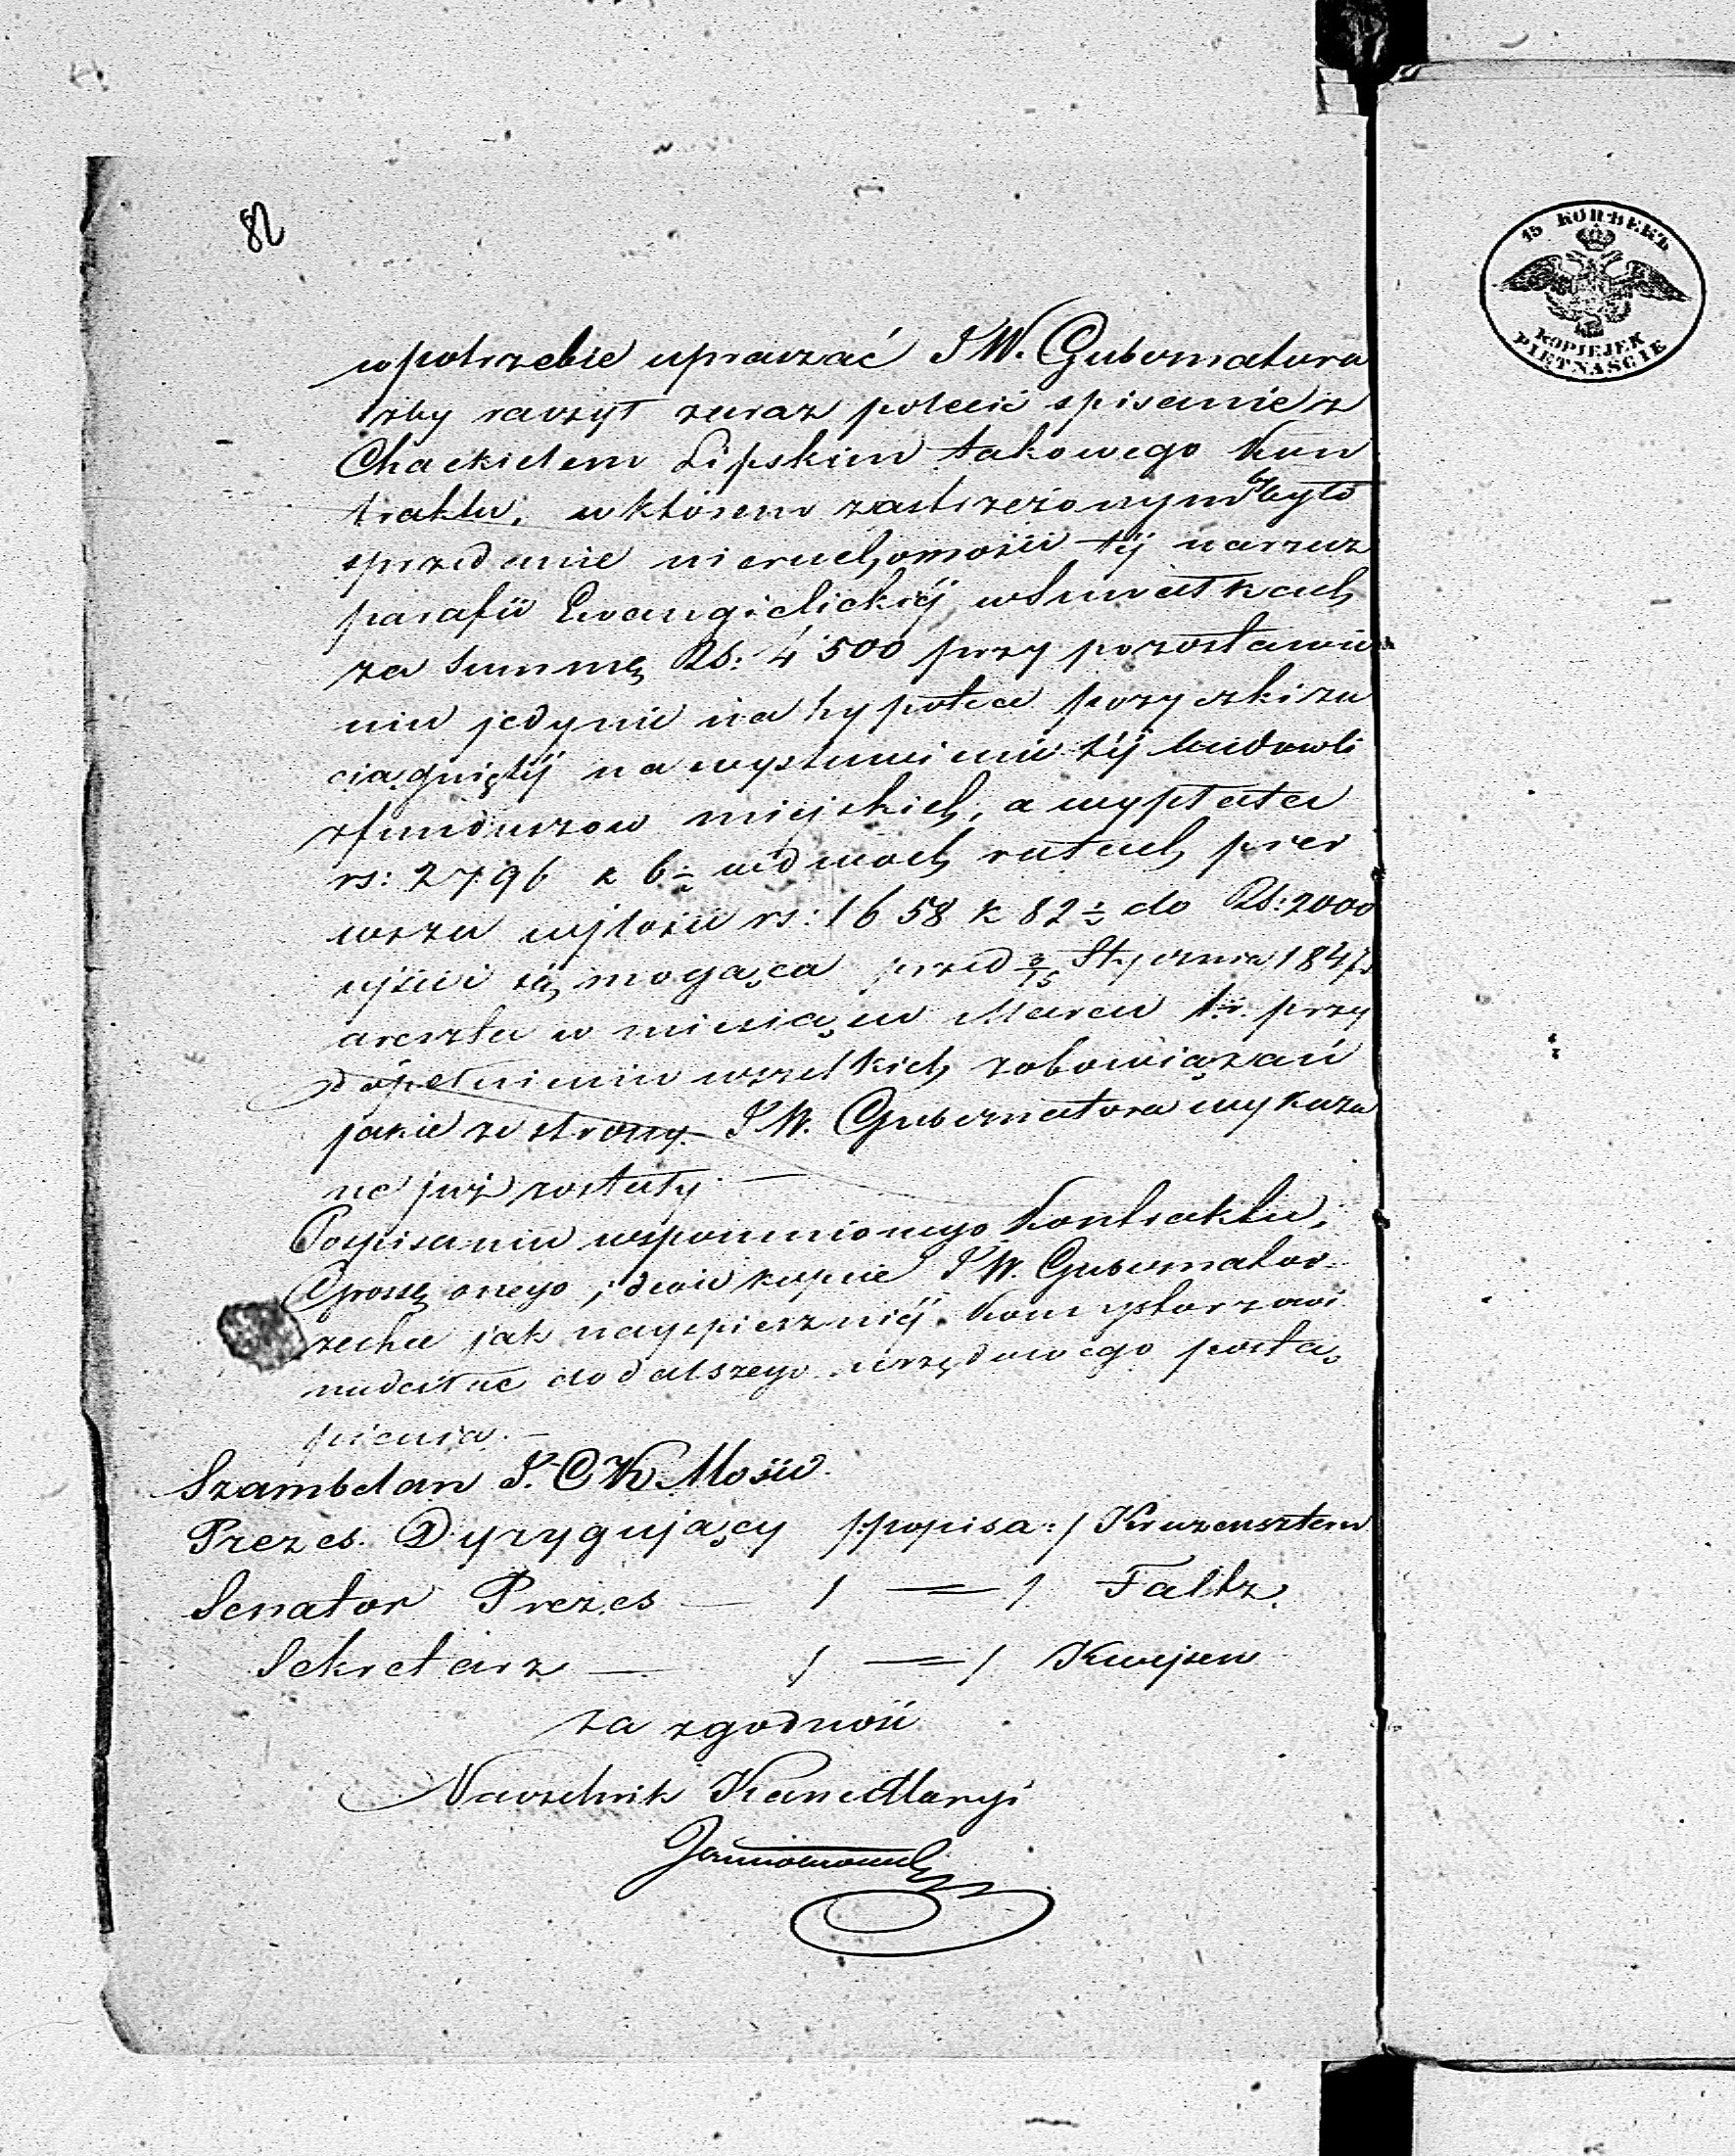 82
15 KOПѢЕКЪ
KOPIEJEK
PIETNAŚCIE
w potrzebie upraszać J W. Gubernatora
żeby raczył zaraz polecić spisanie z
Chackielem Lipskim takowego Kon
traktu, w którem zastrzeżonym by było
sprzedanie nieruchomości tej na rzecz
parafii Ewangielickiej w Suwałkach
za Summę Rs: 4500 przy pozostawie
niu jedynie na hypotece pożyczki za
ciągniętej na wystawienie tej budowli
z funduszow miejskich, a wypłatą
rs: 2796 k 6½ w dwóch ratach pier
wsza w ilości rs: 1658 k 82½ do Rs: 2000
uiścić się mogąca przed 3/15 Stycznia 1847
a reszta w miesiącu Marcu t.r. przy
dopełnieniu wszelkich zobowiązań
jakie ze strony J W. Gubernatora wykaza
ne już zostały. —
Po spisaniu wspomnionego Kontraktu,
Grossę onego, i dwie kopie J W. Gubernator
zechce jak najspieszniej Konsystorzowi
nadesłać do dalszego urzędowego postą
pienia. —
Szambelan J. C K Mości
Prezes Dyrygujący /:popisa:/ Kruzensztern
Senator Prezes — / = / Faltz.
Sekretarz — / = / Kwejsen
za zgodność
Naczelnik Kancellaryi